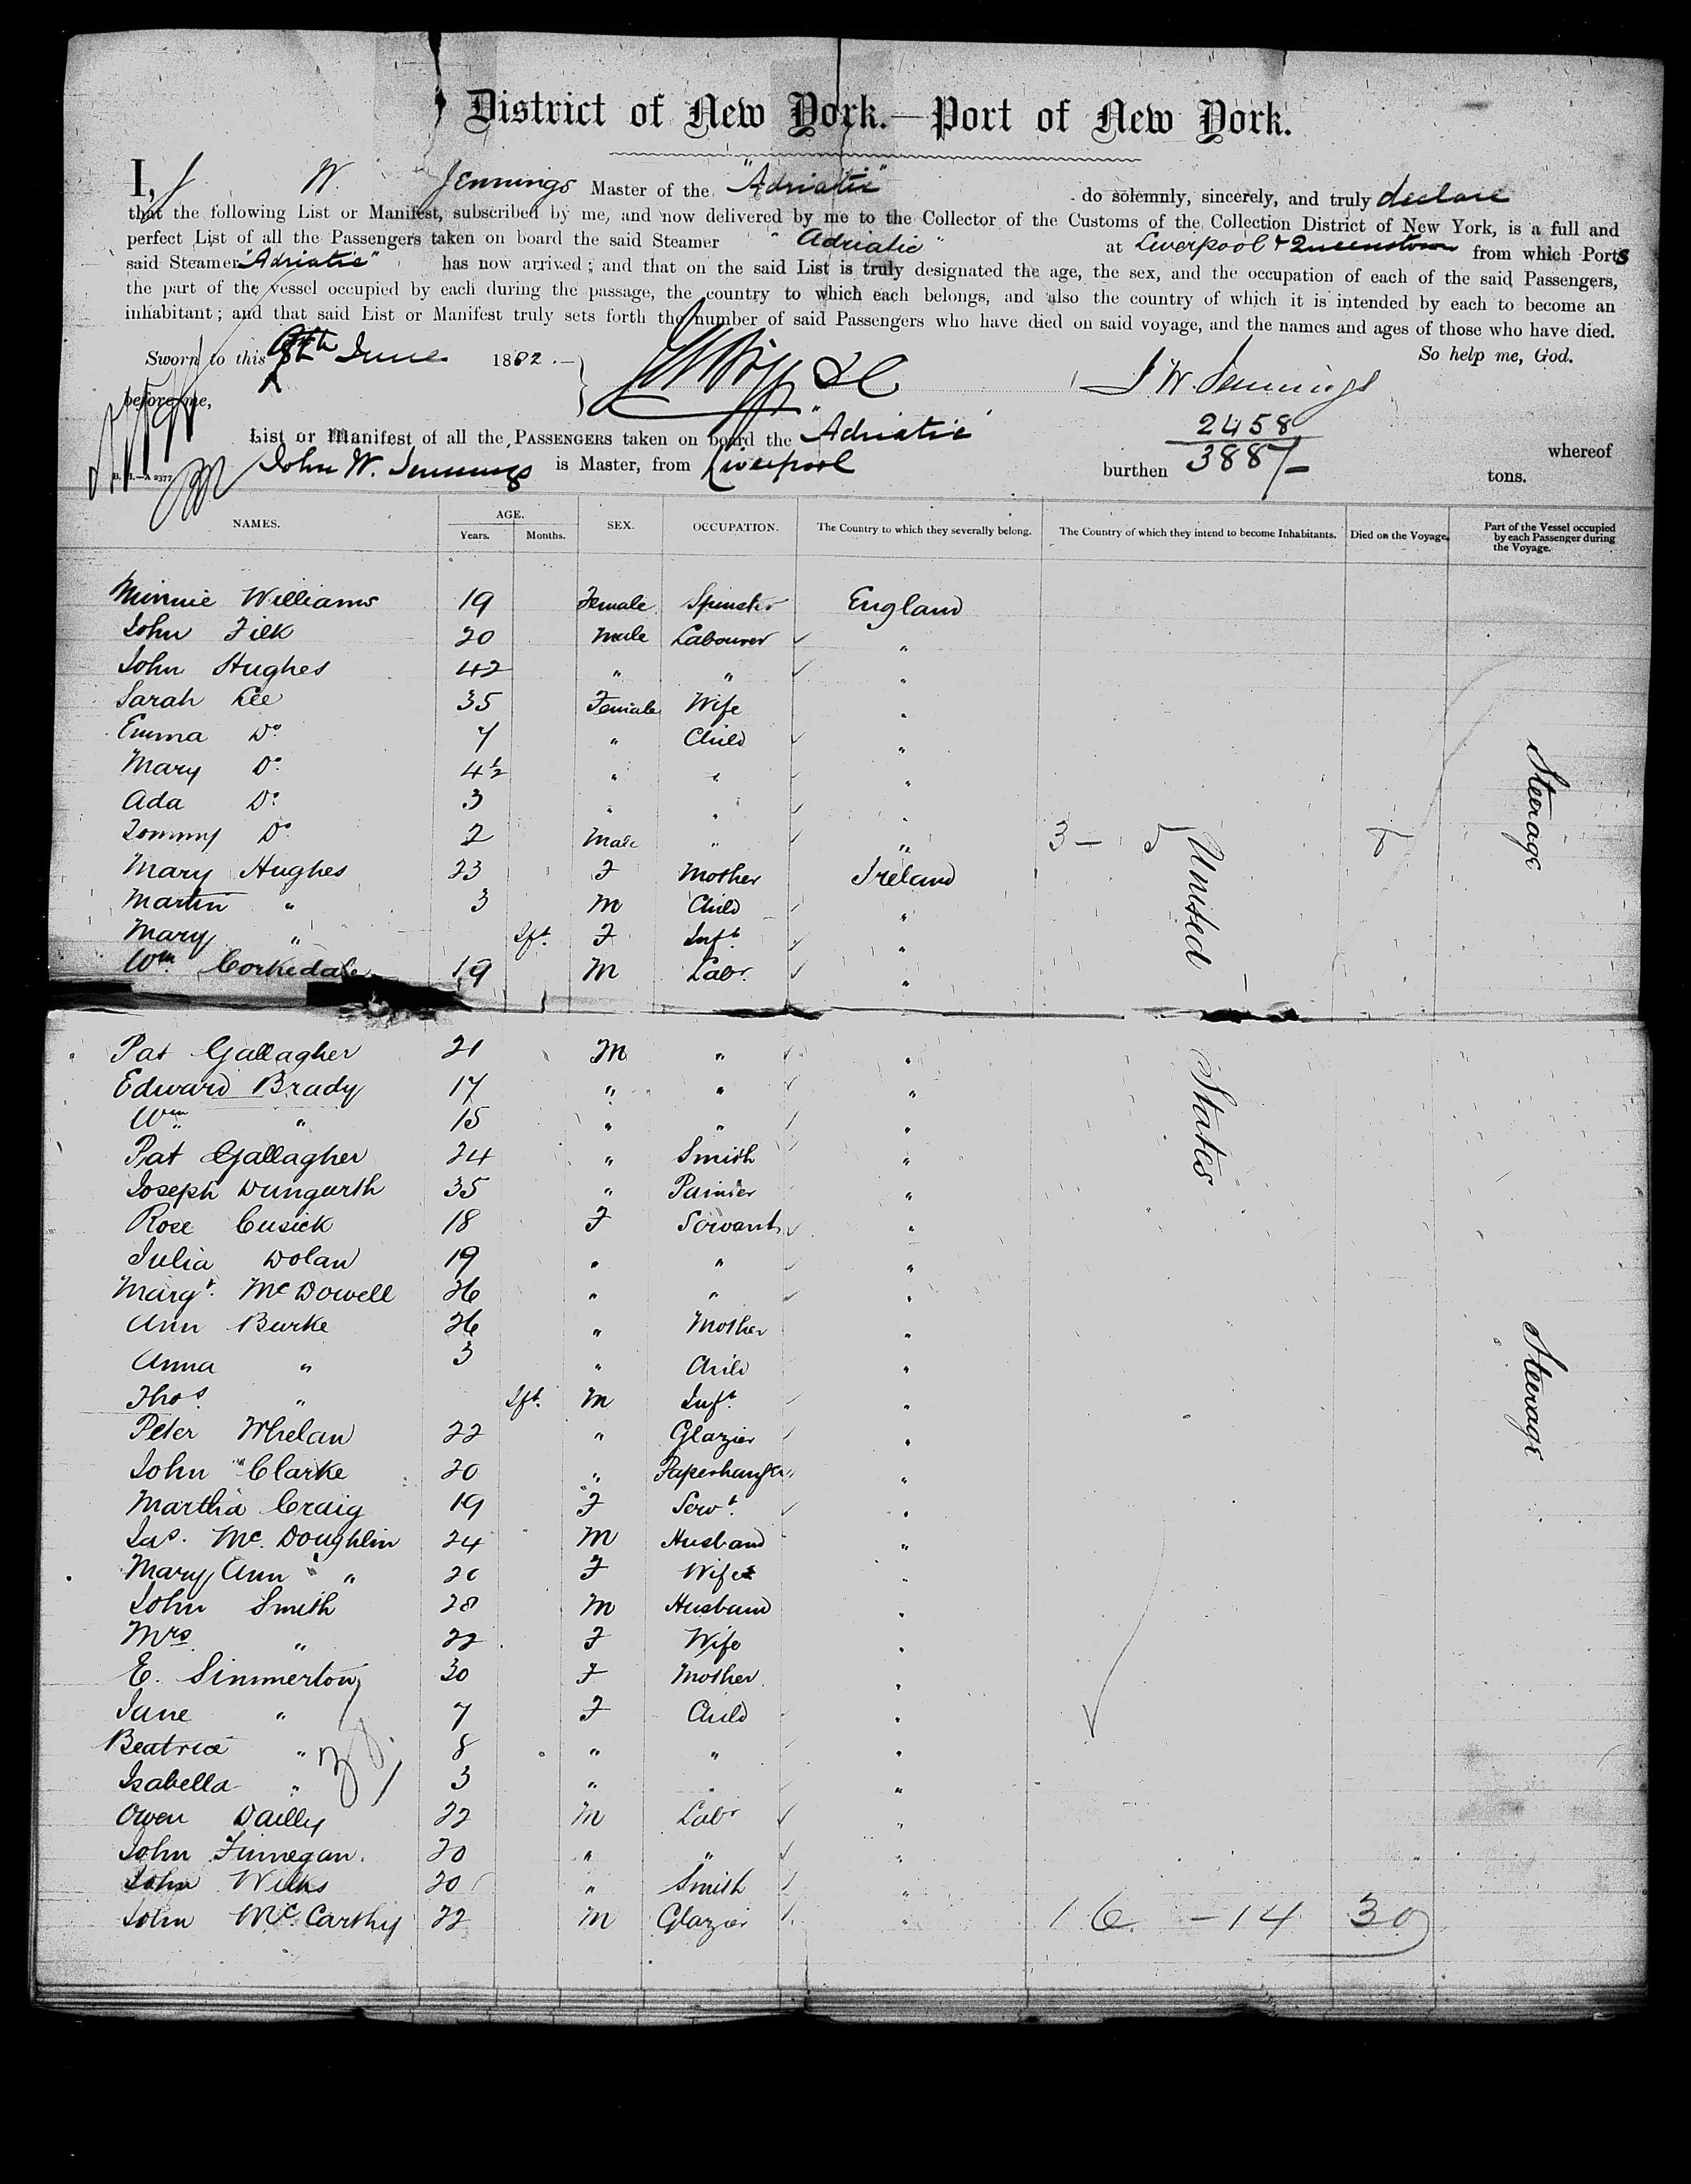 District of New York.—Port of New York.
I, J W. Jennings Master of the "Adriatic" do solemnly, sincerely, and truly declare
that the following List or Manifest, subscribed by me, and now delivered by me to the Collector of the Customs of the Collection District of New York, is a full and
perfect List of all the Passengers taken on board the said Steamer "Adriatic" at Liverpool & Queenstown from which Ports
said Steamer "Adriatic" has now arrived; and that on the said List is truly designated the age, the sex, and the occupation of each of the said Passengers,
the part of the vessel occupied by each during the passage, the country to which each belongs, and also the country of which it is intended by each to become an
inhabitant; and that said List or Manifest truly sets forth the number of said Passengers who have died on said voyage, and the names and ages of those who have died.
So help me, God.
Sworn to this June 1882.
J W. Jennings
before me,
List or Manifest of all the PASSENGERS taken on board the "Adriatic" 2458 whereof
John W. Jennings is Master, from Liverpool burthen 3887 tons.
NAMES. AGE. Years. Months. SEX. OCCUPATION. The Country to which they severally belong. The Country of which they intend to become Inhabitants. Died on the Voyage. Part of the Vessel occupied by each Passenger during the Voyage.
Minnie Williams 19 Female Spinster England
John Filk 20 Male Labourer "
John Hughes 42 " " "
Sarah Lee 35 Female Wife "
Emma Do 7 " Child "
Mary Do 4½ " " "
Ada Do 3 " " "
Tommy Do 2 Male " " 3 — 5
Mary Hughes 23 F Mother Ireland
Martin " 3 M Child "
Mary " Ift. F Inft "
Wm Corkedale 19 M Labr. "
Pat Gallagher 21 M " "
Edward Brady 17 " " "
Wm " 15 " " "
Pat Gallagher 24 " Smith "
Joseph Dungurth 35 " Painter "
Rose Cusick 18 F Servant "
Julia Dolan 19 " " "
Margt. McDowell 26 " " "
Ann Burke 26 " Mother "
Anna " 3 " Child "
Thos. " Ift. M Inft "
Peter Whelan 22 " Glazier "
John Clarke 20 " Paperhanger "
Martha Craig 19 F Servt. "
Jas. Mc. Doughlin 24 M Husband "
Mary Ann " 20 F Wife "
John Smith 28 M Husband "
Mrs " 22 F Wife "
E. Simmerton 30 F Mother "
Jane " 7 F Child "
Beatrice " 8 " " "
Isabella " 3 " " "
Owen Dailly 22 M Labr "
John Finnegan. 20 " " "
John Wilks 20 " Smith "
John McCarthy 22 M Glazier " 16 - 14 30
United States
Steerage
Steerage